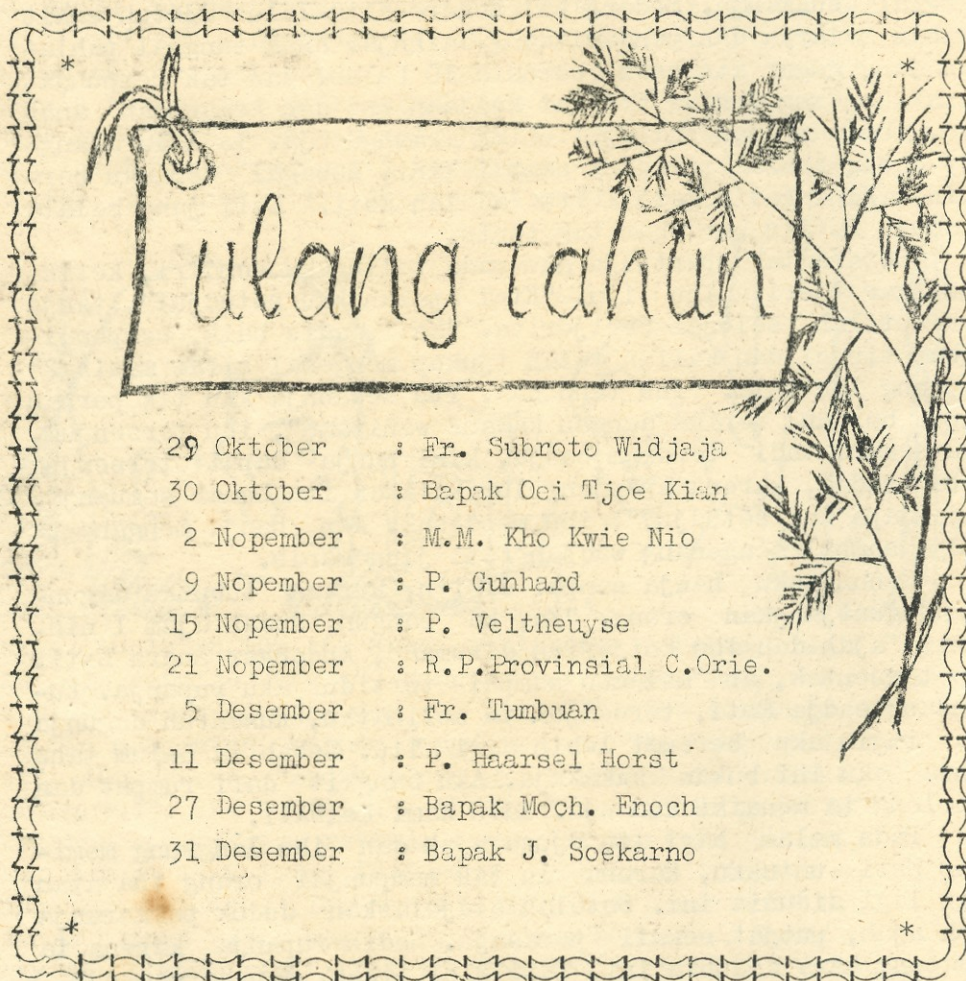 ulang tahun
29 Oktober : Fr. Subroto Widjaja
30 Oktober : Bapak Oei Tjoe Kian
2 Nopember : M.M. Kho Kwie Nio
9 Nopember : P. Gunhard
15 Nopember : P. Veltheuyse
21 Nopember : R.P.Provinsial C.Orie.
5 Desember : Fr. Tumbuan
11 Desember : P. Haarsel Horst
27 Desember : Bapak Moch. Enoch
31 Desember : Bapak J. Soekarno